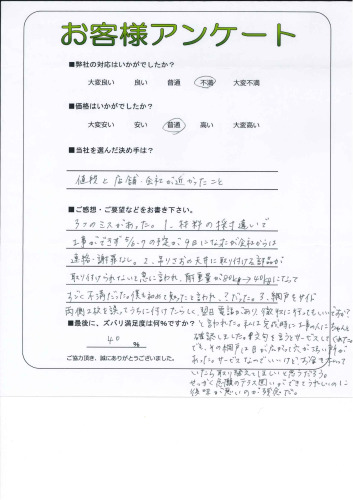 お客様アンケート
■弊社の対応はいかがでしたか？
大変良い 良い 普通 不満 大変不満
■価格はいかがでしたか？
大変安い 安い 普通 高い 大変高い
■当社を選んだ決め手は？
値段と店舗・会社が近かったこと
■ご感想・ご要望などをお書き下さい。
3つのミスがあった。1、材料の採寸違いで
工事ができず 5/2-7の予定が9日になったが会社からは
連絡・謝罪なし。2、吊りさおの天井に取り付ける部品が
取り付けられないと急に言われ、耐重量が80kg→40kgになって
すごく不満だった。僕も初めて知ったと言われ、?だった。3、網戸をサイド
両側2枚を誤ってうちに付けたらしく、翌日電話があり徹収に行ってもいいですか?
■最後に、ズバリ満足度は何％ですか？
と言われた。私は完成時に工事の人にちゃんと
40 %
確認しました。
ご協力頂き、誠にありがとうございました。
その網戸は目が広がって穴が
あった。サービスなのでいいけど、お金を払って
いたら取り替えてほしいと思うだろう。
せっかく念願のテラス囲いができてうれしいのに
後味が悪いのが残念だ。